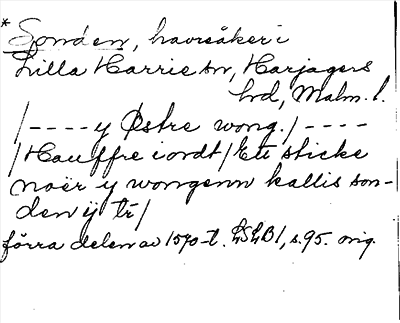 * Sonden, havreåker i
Lilla Harrie sn, Harjagers
hd, Malm. l.
/---- y Østre wong./----
/Hauffre iordt/ Ett sticke
noer y wongenn kallis son-
den ÿ tr/
förra delen av 1570-t. LSLB1, s.95. orig.